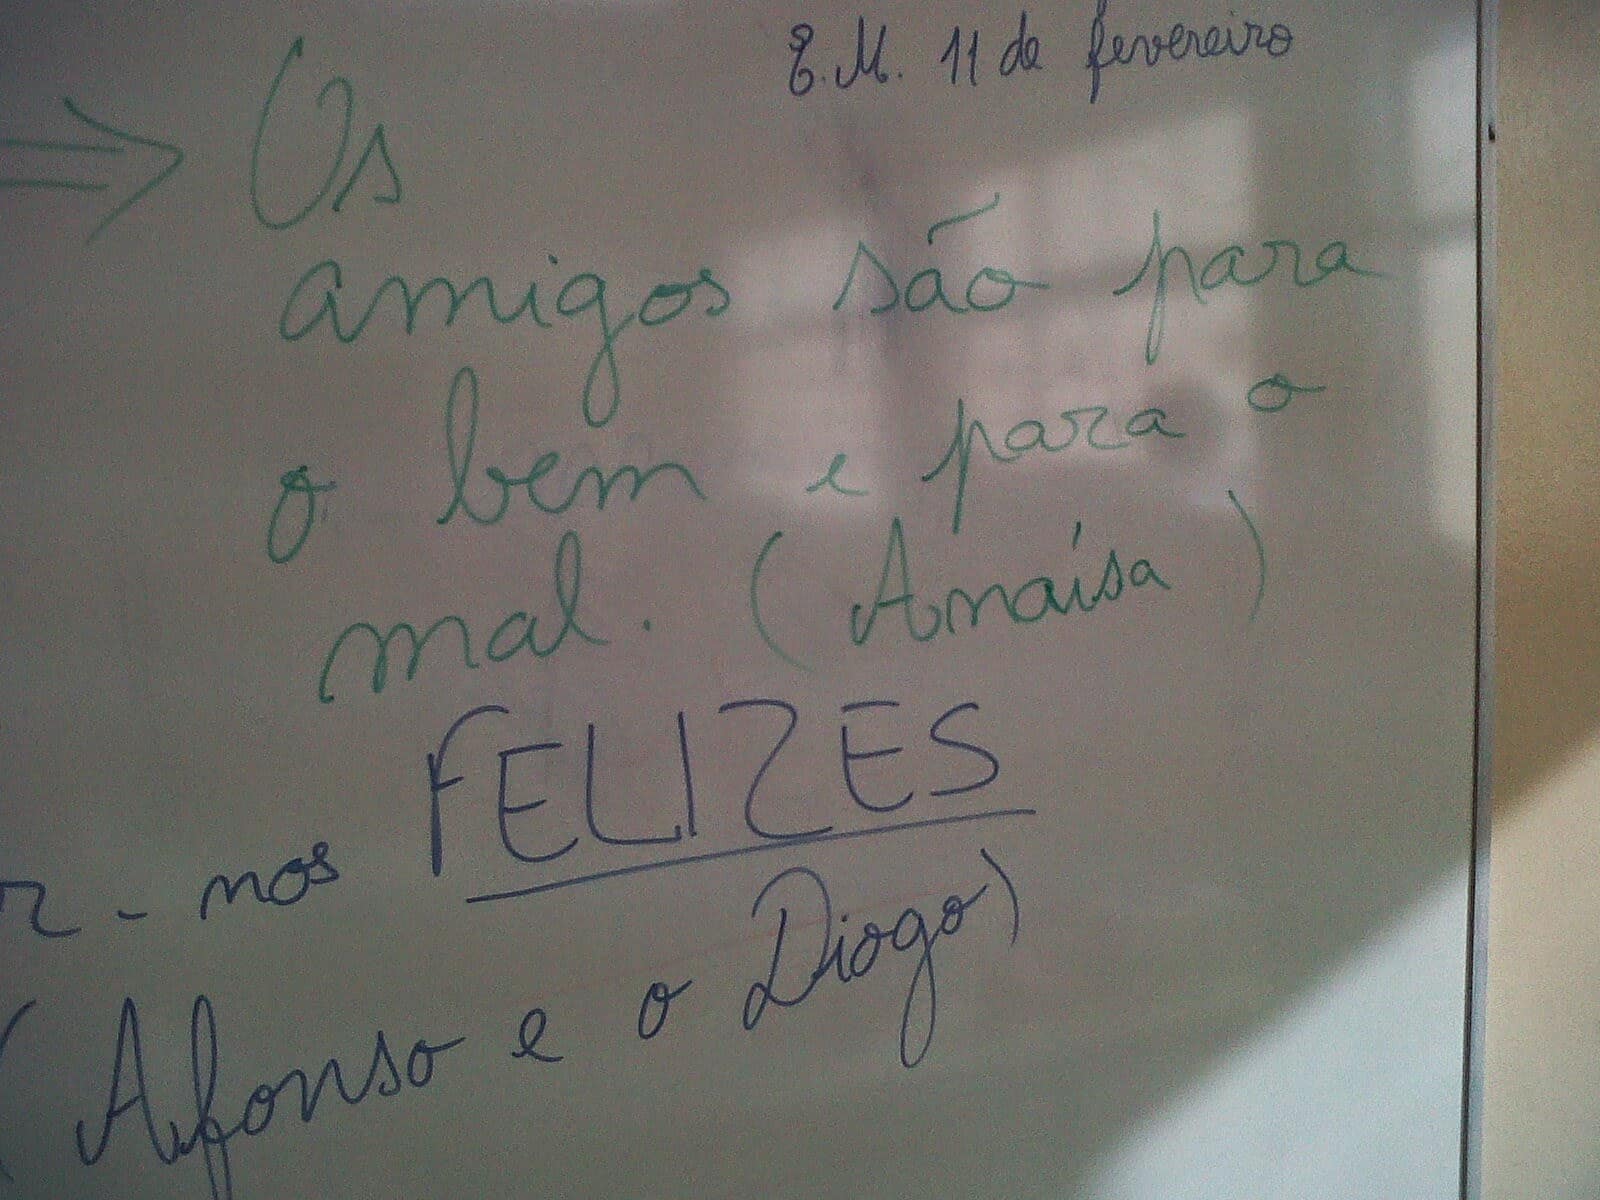 E.M. 11 de fevereiro
⇒ Os
amigos são para
o bem e para o
mal. (Anaísa)
r-nos FELIZES
(Afonso e o Diogo)